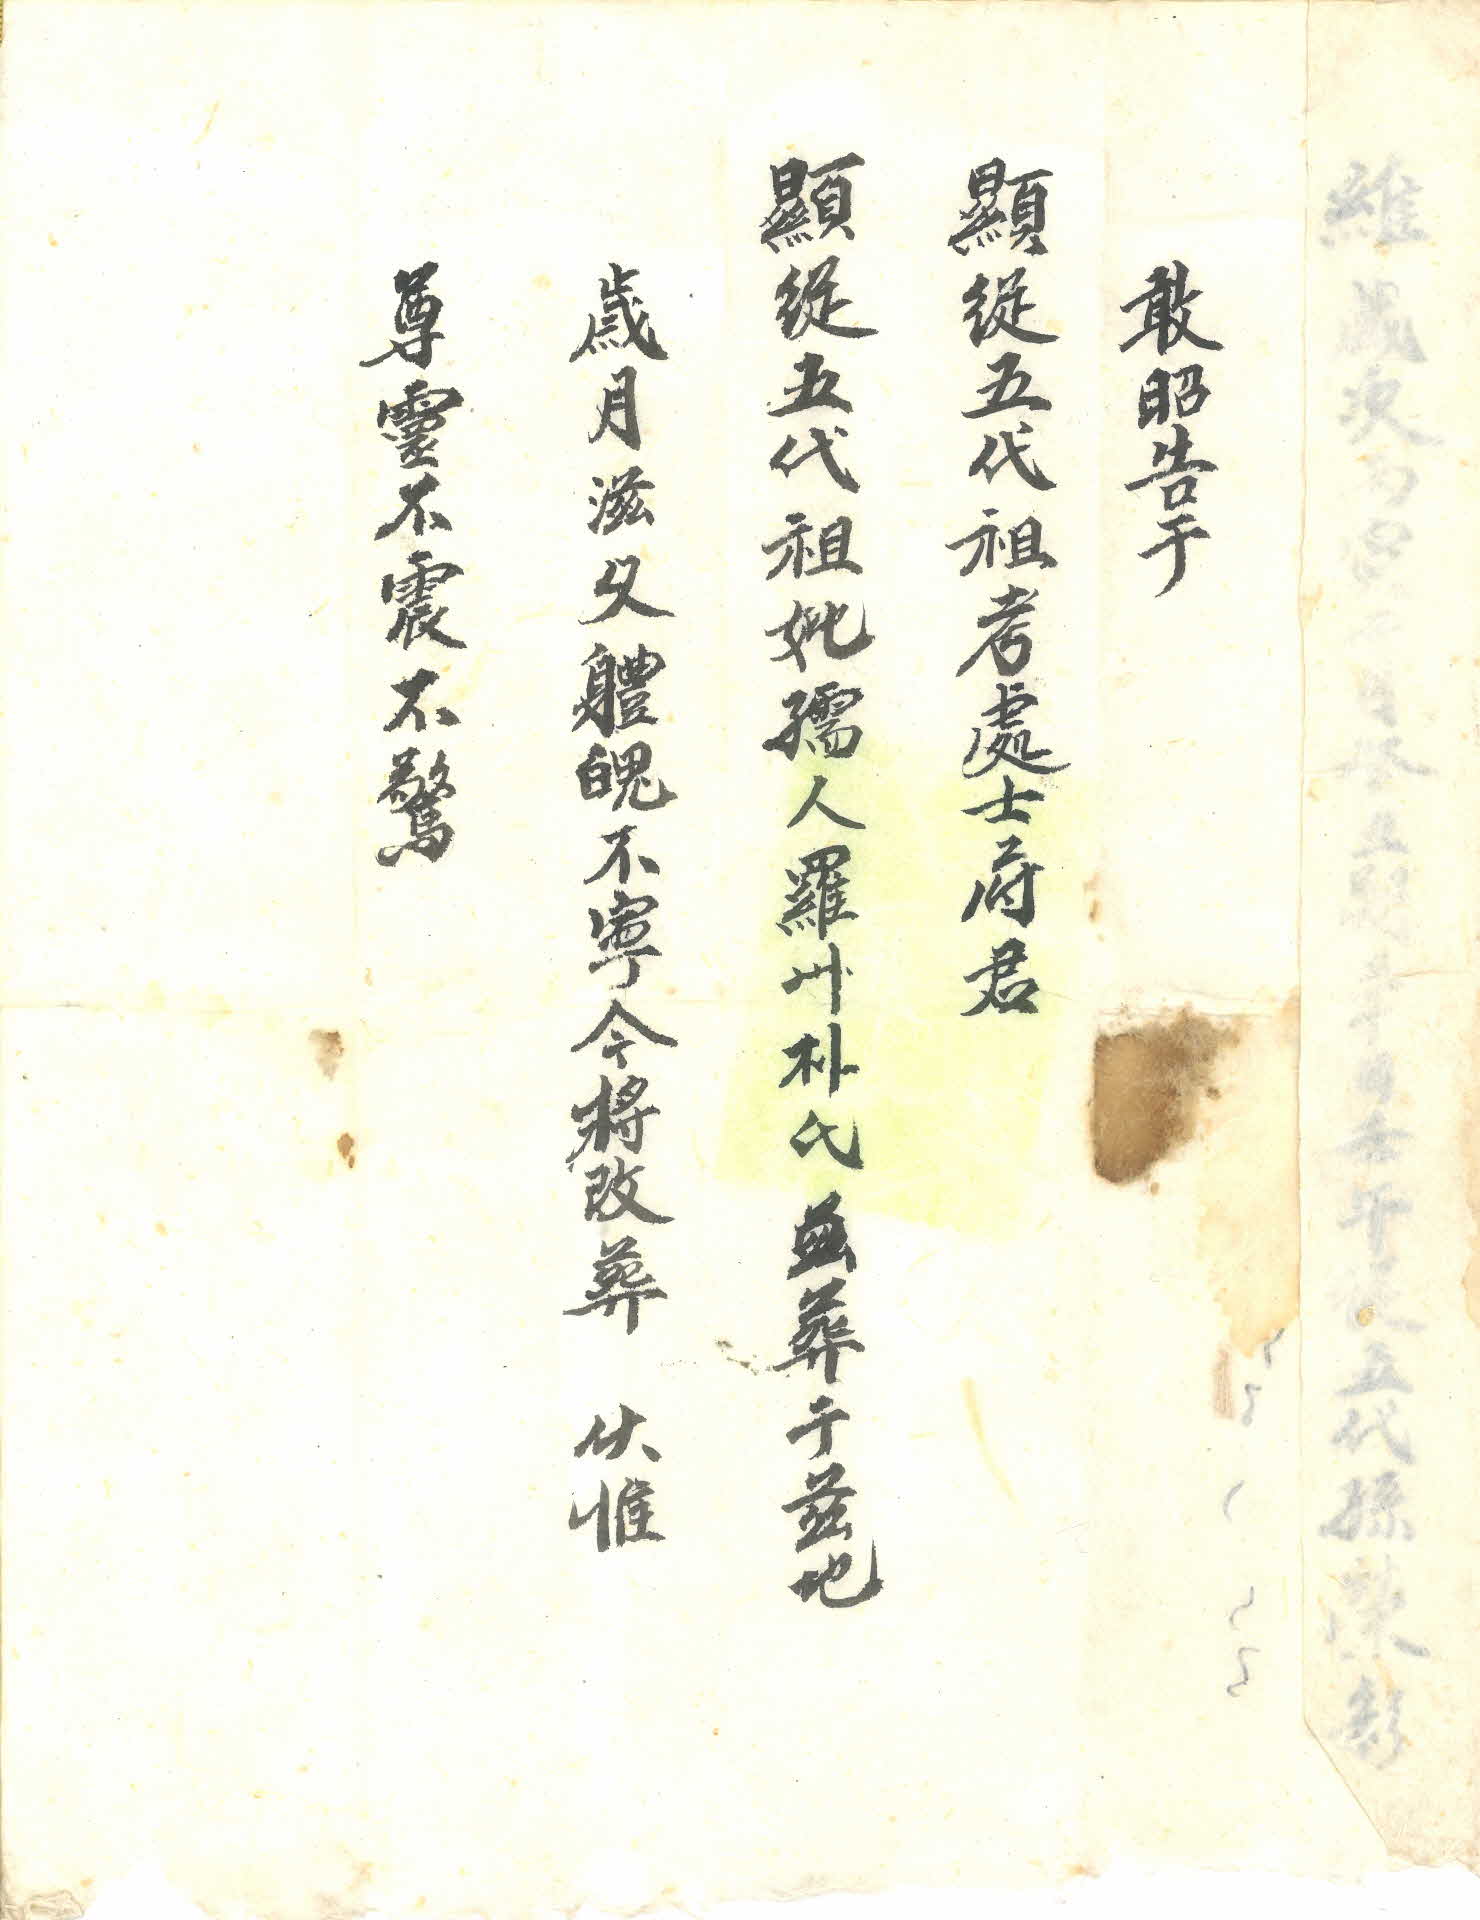 維歲次丙
五代孫
敢昭告于
顯從五代祖考處士府君
顯從五代祖妣孺人羅州朴氏並葬于茲地
歲月滋久體魄不寧今將改葬 伏惟
尊靈不震不驚